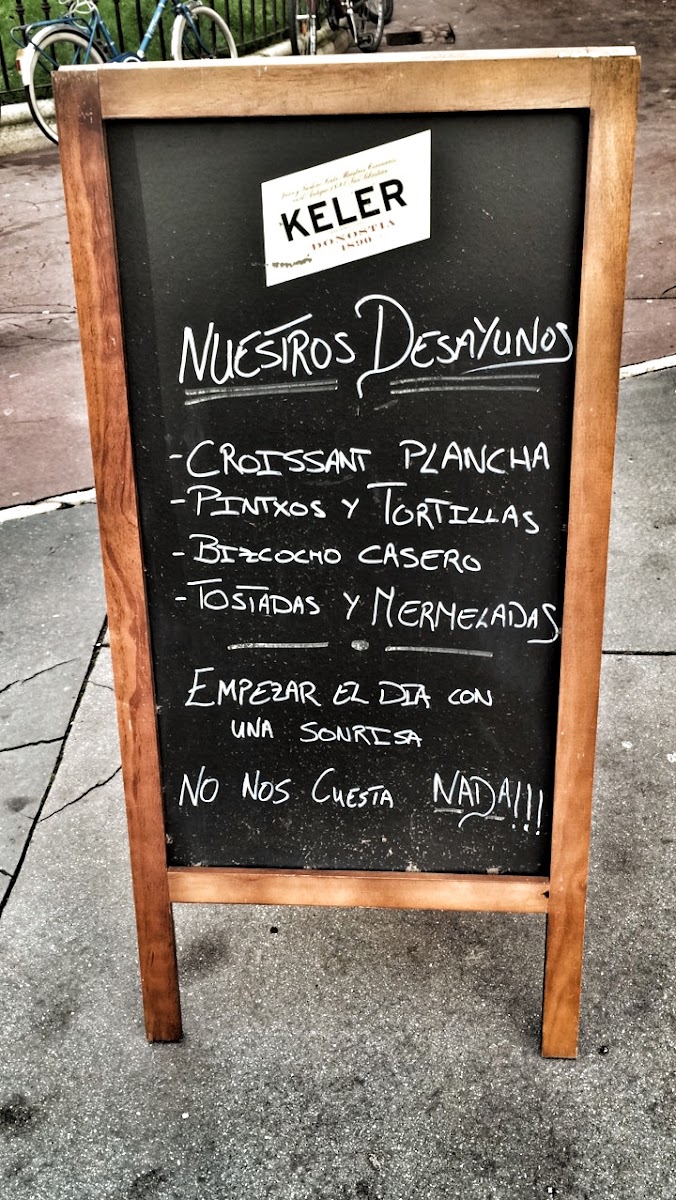 KELER
DONOSTIA
1890
NUESTROS DESAYUNOS
- CROISSANT PLANCHA
- PINTXOS Y TORTILLAS
- BIZCOCHO CASERO
- TOSTADAS Y MERMELADAS
EMPEZAR EL DIA CON
UNA SONRISA
NO NOS CUESTA NADA!!!